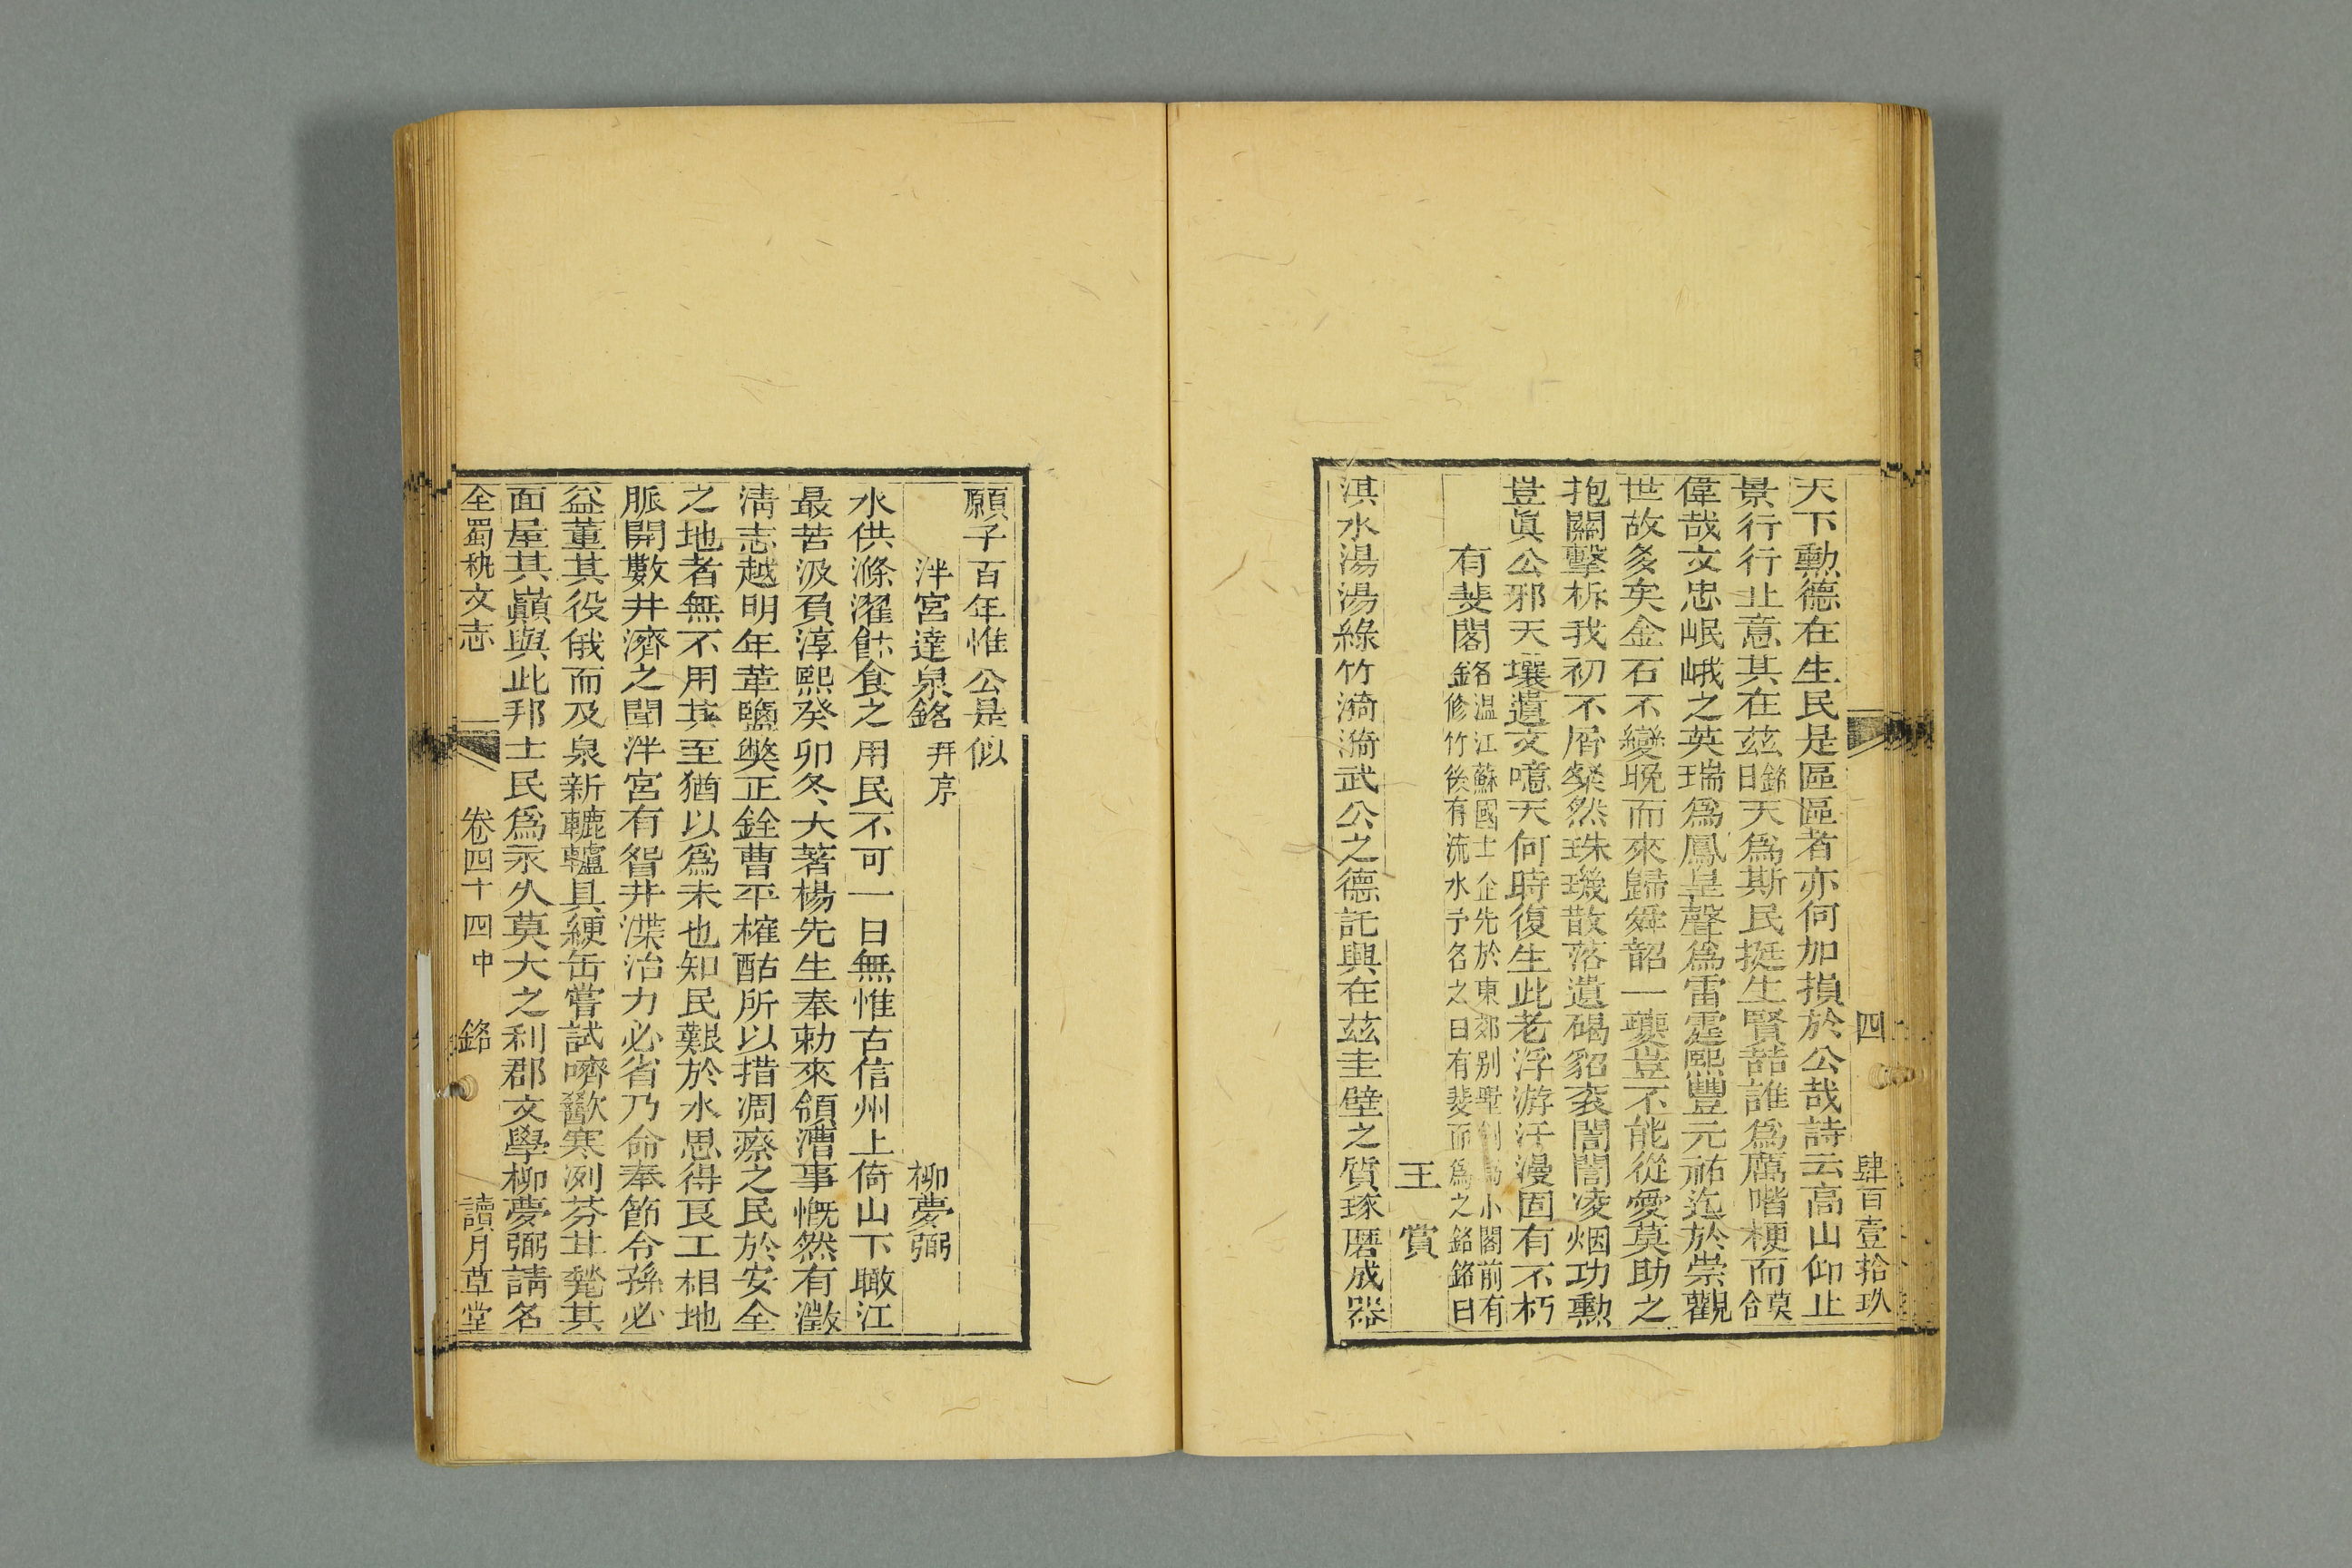 四 肆百壹拾玖
天下勲德在生民是區區者亦何加損於公哉詩云高山仰止
景行行止意其在茲銘曰天爲斯民挺生賢喆誰爲厲喈梗而莫合
偉哉文忠岷峨之英瑞爲鳳皇聲爲雷霆熙豐元祐迄於崇觀
世故多矣金石不變晚而來歸舜韶一夔豈不能從愛莫助之
抱關擊柝我初不屑粲然珠璣散落遺碣貂衮誾誾凌烟功勲
豈眞公邪天壤遺文噫天何時復生此老浮游汗漫固有不朽
有斐閣銘温江蘇國士企先於東郊别墅創爲小閣前有修竹後有流水予名之曰有斐而爲之銘銘曰
王賞
淇水湯湯綠竹漪漪武公之德託興在茲圭壁之質琢磨成器
願子百年惟公是似
泮宮達泉銘并序 柳夢弼
水供滌濯飲食之用民不可一日無惟古信州上倚山下瞰江
最苦汲負淳熙癸卯冬大著楊先生奉勅來領漕事慨然有澂
淸志越明年革鹽獘正銓曹平榷酤所以措凋瘵之民於安全
之地者無不用其至猶以爲未也知民艱於水思得良工相地
脈開數井濟之聞泮宮有眢井渫治力必省乃命奉節令孫必
益董其役俄而及泉新轆轤具綆缶嘗試嚌歠寒冽芬甘甃其
面屋其巔與此邦士民爲永久莫大之利郡文學柳夢弼請名
全蜀秇文志 卷四十四中 銘 讀月草堂